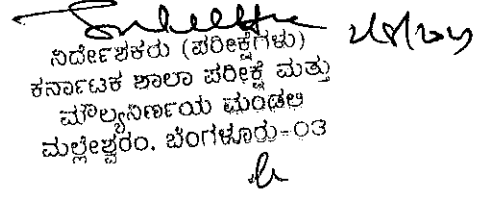 ನಿರ್ದೇಶಕರು (ಪರೀಕ್ಷೆಗಳು)
ಕರ್ನಾಟಕ ಶಾಲಾ ಪರೀಕ್ಷೆ ಮತ್ತು
ಮೌಲ್ಯನಿರ್ಣಯ ಮಂಡಲಿ
ಮಲ್ಲೇಶ್ವರಂ. ಬೆಂಗಳೂರು-೦3